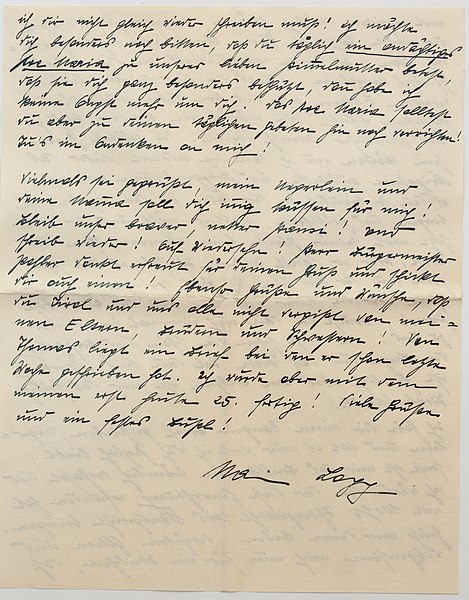 ich dir nicht gleich wieder schreiben muß! Ich möchte
dich besonders noch bitten, daß du täglich ein andächtiges
Ave Maria zu unserer lieben Himmelmutter betest,
daß sie dich ganz besonders beschützt, dann habe ich
keine Angst mehr um dich. Das Ave Maria solltest
du aber zu deinen täglichen Gebeten hin noch verrichten!
Tu's im Andenken an mich!
Vielmals sei gegrüßt, mein und
deine Mama soll dich innig küssen für mich!
Bleib unser braver, netter Hansi! Und
schreib wieder! Auf Wiedersehn! Herr Bürgermeister
dankt erfreut für deinen Gruß und schickt
dir auch einen! Ebenso Grüße und Wünsche, daß
du Tirol und uns alle nicht vergißt von mei=
nen Eltern, Brüdern und Schwestern! Von
Thomas liegt ein Brief bei den er schon letzte
Woche geschrieben hat. Ich wurde aber mit dem
meinen erst heute 25. fertig! Viele Grüße
und ein Bussl!